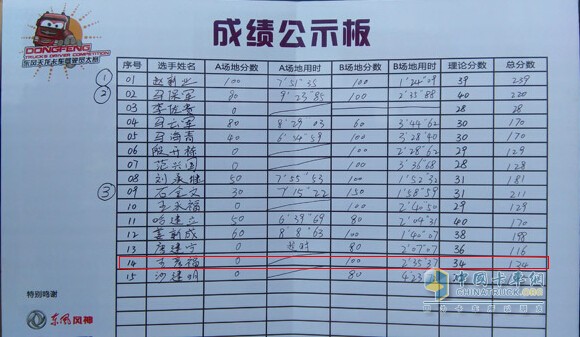 成绩公示板
DONGFENG
TRUCKS DRIVER COMPETITION
东风天龙卡车驾驶员大赛
序号 选手姓名 A场地分数 A场地用时 B场地分数 B场地用时 理论分数 总分数
① 01 赵新业 100 7'51"35 100 1'24"09 39 239
② 02 马保军 80 9'23"85 100 2'35"88 40 220
03 28 28
04 马云军 80 8'29"03 60 3'44"62 30 170
05 马海青 40 6'24"59 100 3'28"40 30 170
06 0 100 2'28"62 29 129
07 范兴国 0 100 3'36"68 28 128
08 刘承继 50 7'55"53 100 1'52"32 31 181
③ 09 石金文 30 7'15"22 150 1'58"59 31 211
10 王永福 0 100 2'40"50 29 129
11 哈建立 50 6'39"69 80 2'09"31 40 170
12 姜新成 60 8'8"63 100 1'40"07 38 198
13 唐建方 0 超时 80 2'07"07 36 116
14 王彦福 0 100 2'35"37 34 134
15 沙建明 0 80 4'23
特别鸣谢
东风风神
中国卡车网
CHINATRUCK.ORG